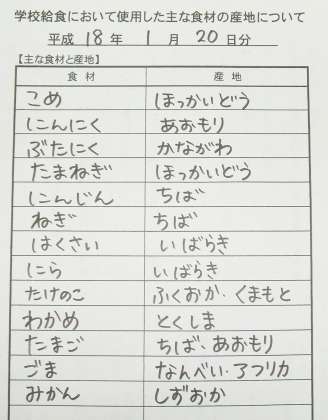 学校給食において使用した主な食材の産地について
平成 18 年 1 月 20 日分
【主な食材と産地】
食材 産地
こめ ほっかいどう
にんにく あおもり
ぶたにく かながわ
たまねぎ ほっかいどう
にんじん ちば
ねぎ ちば
はくさい いばらき
にら いばらき
たけのこ ふくおか・くまもと
わかめ とくしま
たまご ちば・あおもり
ごま なんべい・アフリカ
みかん しずおか